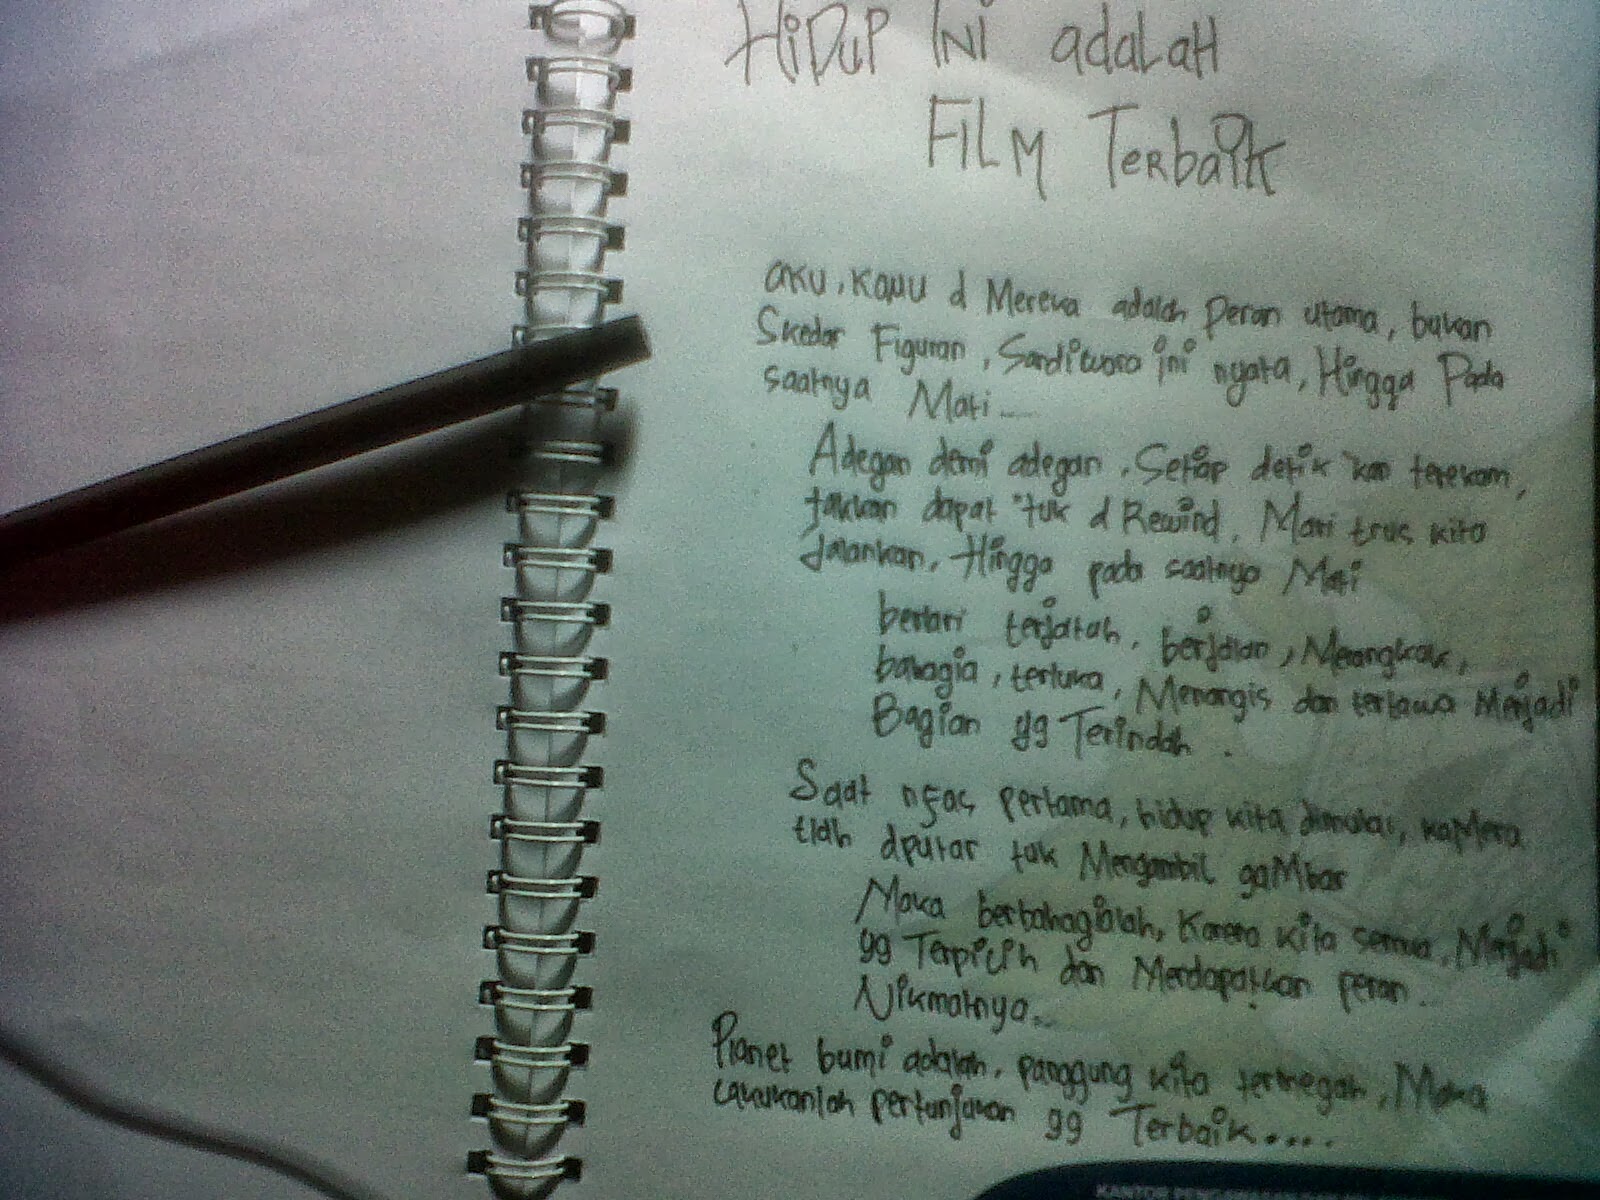 HiDup INi adaLaH
FiLM TerbaiK
aku, kamu d Mereka adalah Peran utama, bukan
Skedar Figuran, Sandiwara ini nyata, Hingga Pada
saatnya Mati.....
Adegan demi adegan, Setiap detik 'kan terekam,
takkan dapat 'tuk d Rewind, Mari trus kita
Jalankan, Hingga pada saatnya Mati
berlari terjatuh, berjalan, Merangkak,
bahagia, terluka, Menangis dan tertawa Menjadi
Bagian yg Terindah.
Saat nfas pertama, hidup kita dimulai, kaMera
tlah dputar tuk Mengambil gaMbar
Maka berbahagialah, Karena kita semua, Menjadi
yg Terpilih dan Mendapatkan peran.
Nikmatnya...
Planet bumi adalah, panggung kita termegah, Maka
Lakukanlah pertunjukan yg Terbaik.....